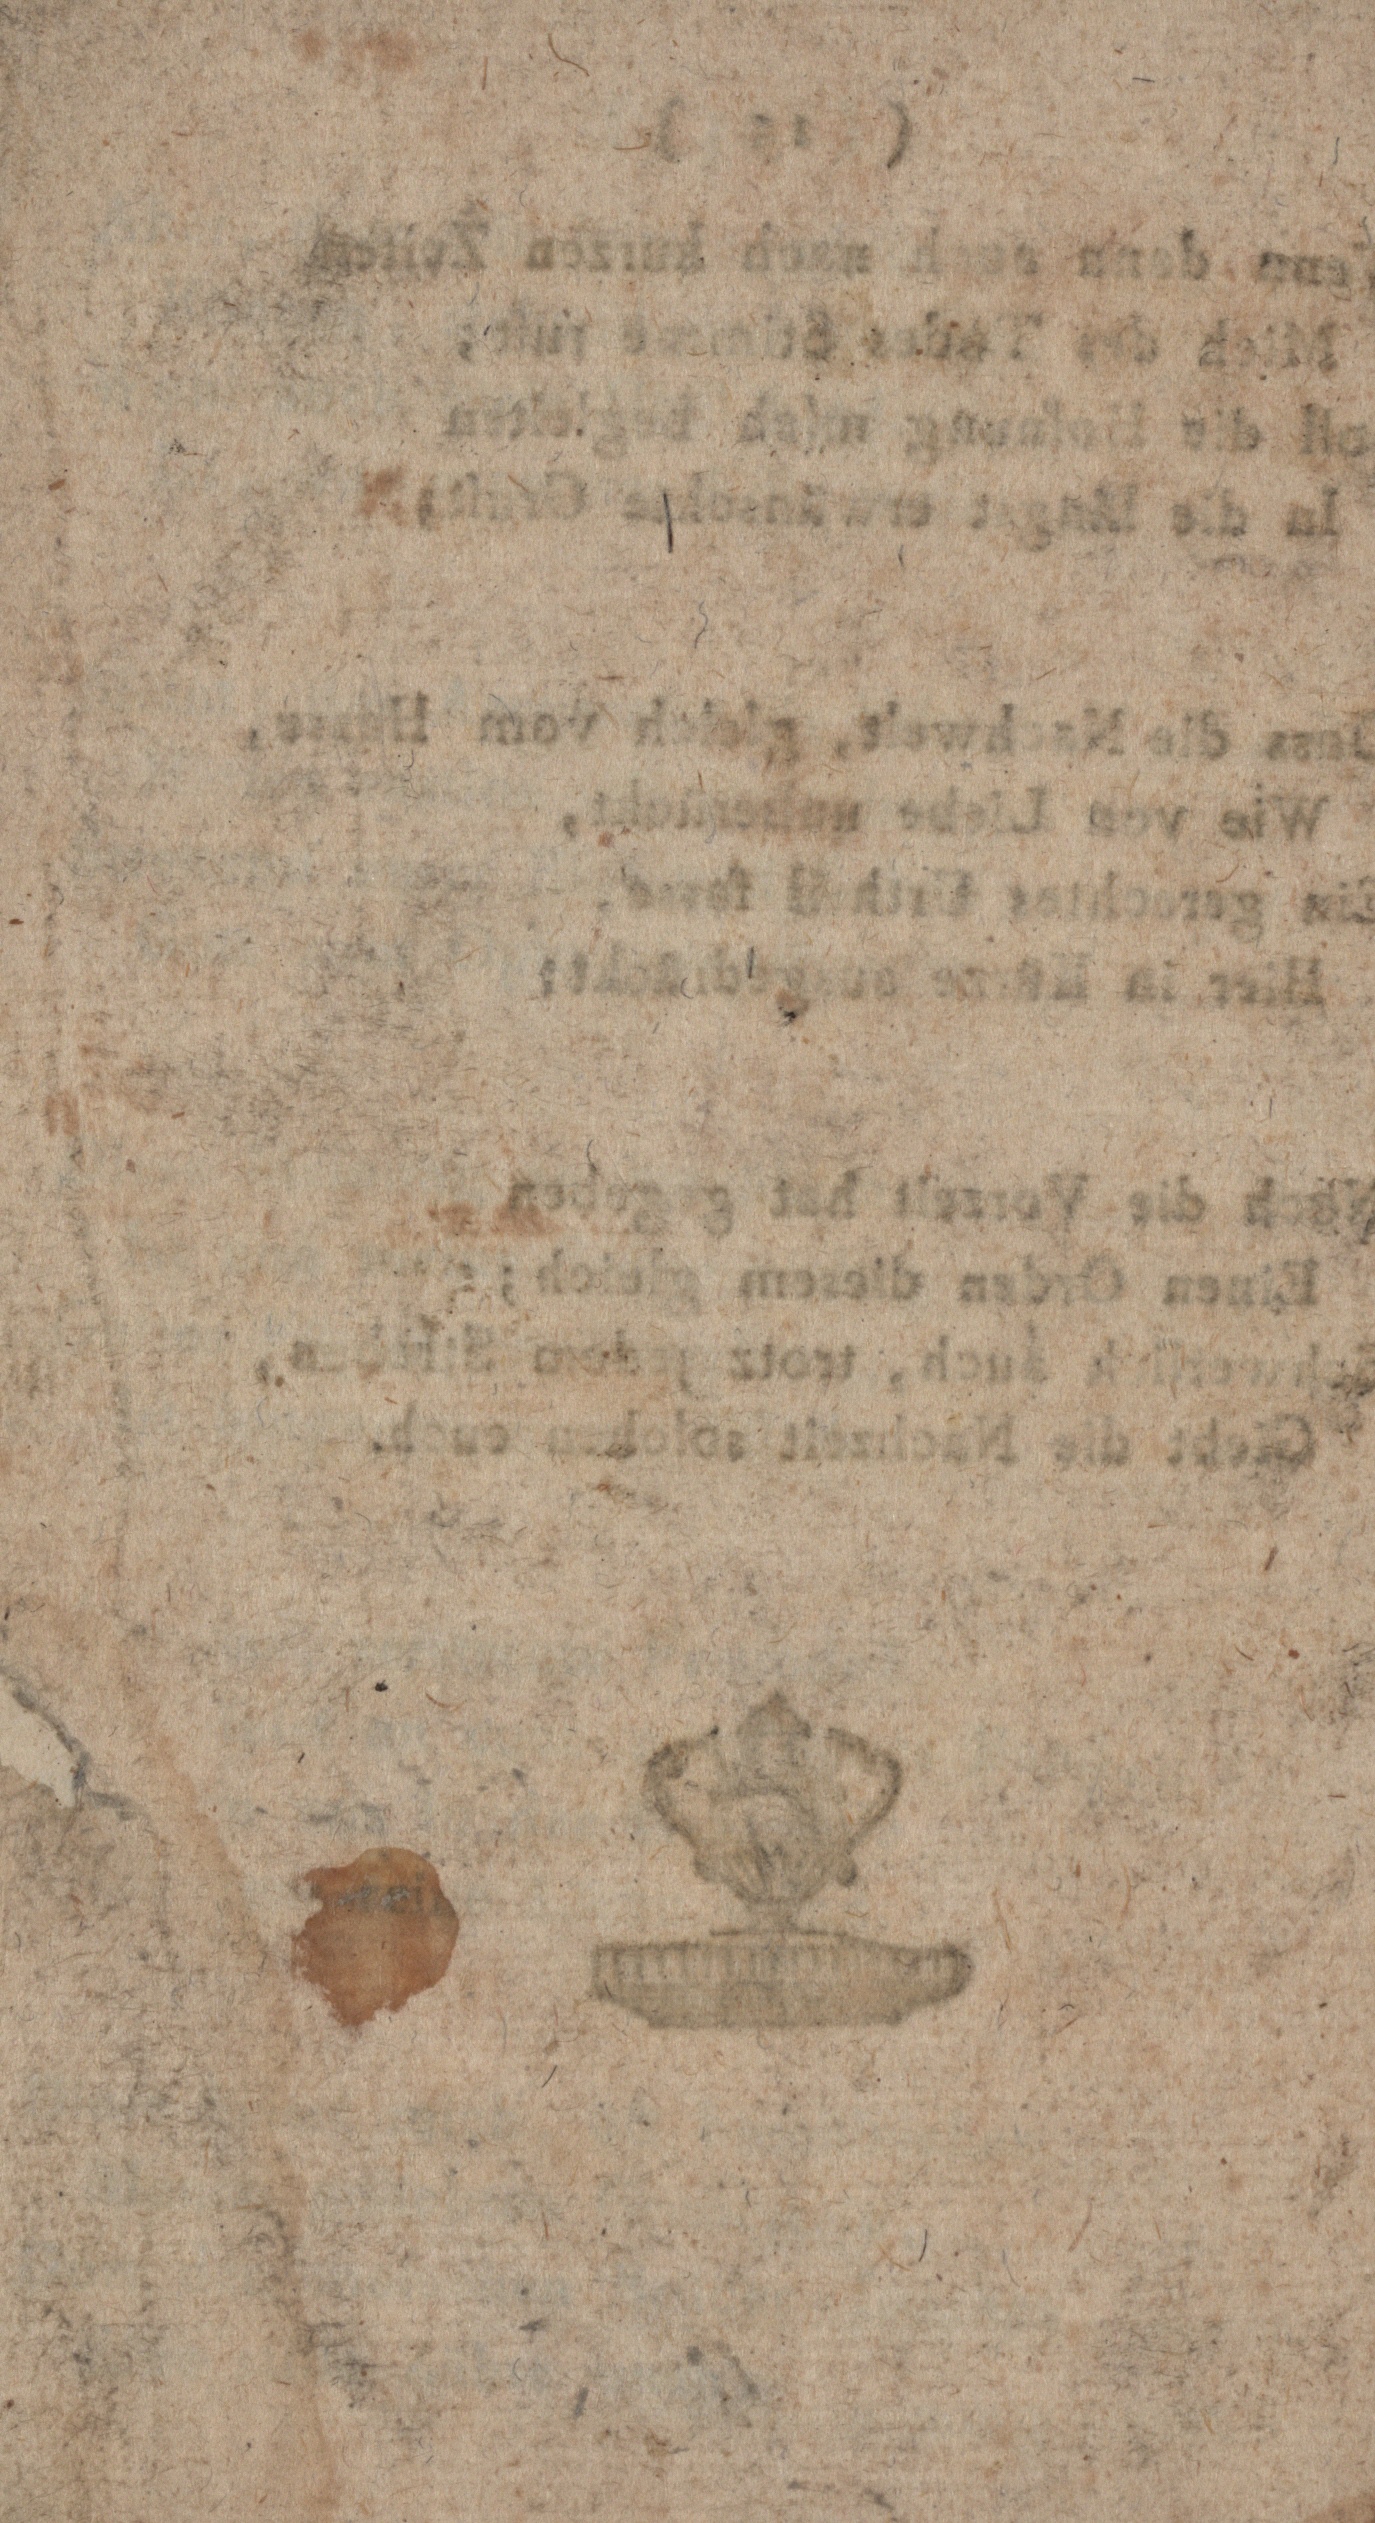 ( 15 )
denn auch nach kurzen Zeiten
Mich des Todes Stimme ruft;
die Hofnung mich begleiten
In die längst erwünschte Gruft;
Dass die Nachwelt, gleich vom Hasse,
Wie von Liebe unberückt,
Ein gerechtes Urtheil fasse,
Hier in Kürze ausgedrückt:
Nach die Vorzeit hat gegeben
Einen Orden diesem gleich;
Schwerlich auch, trotz jedem
Giebt die Nachzeit solchen euch.